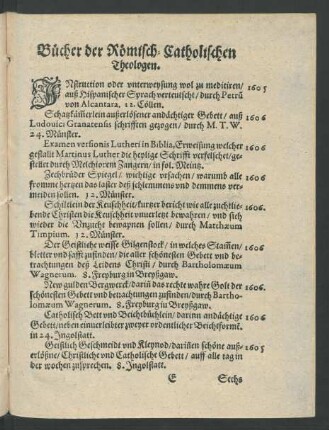 Bücher der Römisch-Catholischen
Theologen.
INstruction oder vnterweysung wol zu meditirn/ 1605
auß Hispanischer Sprach verteutscht/ durch Petrũ
von Alcantara, 12. Cöllen.
Schatzkämerlein außerlösener andächtiger Gebett/ auß 1606
Ludouici Granatensis schrifften gezogen/ durch M. T. W.
24. Münster.
Examen versionis Lutheri in Biblia, Erweisung welcher 1606
gestallt Martinus Luther die heylige Schrifft verfelschet/ ge-
stellet durch Melchiorn Zangern/ in fol. Meintz.
Zechbrüder Spiegel/ wichtige vrsachen/ warumb alle 1606
fromme hertzen das laster deß schlemmens vnd demmens ver-
meiden sollen. 12. Münster.
Schiltlein der Keuschheit/ kurtzer bericht wie alle zuchtlie- 1606
bende Christen die Keuschheit vnuerletzt bewahren/ vnd sich
wieder die Vnzucht bewapnen sollen/ durch Matthæum
Timpium. 12. Münster.
Der Geistliche weisse Gilgenstock/ in welches Stam̃en/ 1606
bletter vnd safft zufinden/ die aller schönesten Gebett vnd be-
trachtungen deß Leidens Christi/ durch Bartholomæum
Wagnerum. 8. Freyburg in Breyßgaw.
New gulden Bergwerck/ dariñ das rechte wahre Golt der 1606
schönesten Gebett vnd betrachtungen zufinden/ durch Bartho-
lomæum Wagnerum. 8. Freyburg in Breyßgaw.
Catholisch Bett vnd Beichtbüchlein/ darinn andächtige 1606
Gebett/ neben einuerleibter zweyer ordentlicher Beichtform̃
in 24. Ingolstatt.
Geistlich Geschmeidt vnd Kleynod/ dariñen schöne auß- 1605
erlößne/ Christliche vnd Catholische Gebett/ auff alle tag in
der wochen zusprechen. 8. Ingolstatt.
E Sechs